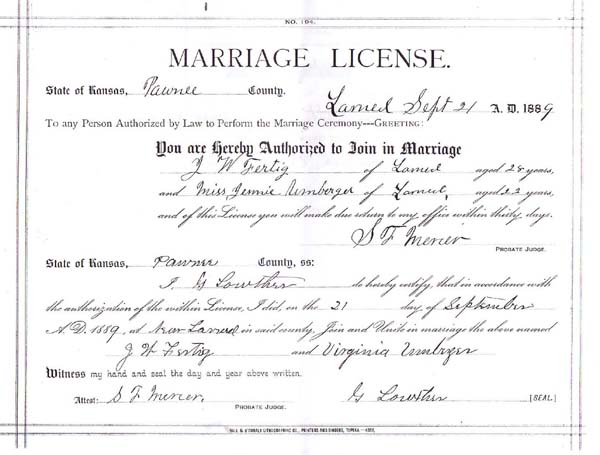 NO. 194.
MARRIAGE LICENSE.
State of Kansas, Pawnee County. Larned Sept 21 A. D. 1889
To any Person Authorized by Law to Perform the Marriage Ceremony---GREETING:
You are Hereby Authorized to Join in Marriage
J W Fertig of Larned aged 28 years,
and Miss Jennie Umberger of Larned, aged 22 years,
and of this License you will make due return to my office within thirty days.
S F Mercer
PROBATE JUDGE.
State of Kansas, Pawnee County, ss:
I, G Lowther do hereby certify, that in accordance with
the authorization of the within License, I did, on the 21 day of September
A. D. 1889, at Near Larned in said county, Join and Unite in marriage the above named
J W Fertig and Virginia Umberger
Witness my hand and seal the day and year above written.
Attest: S F Mercer, G Lowther [SEAL]
PROBATE JUDGE.